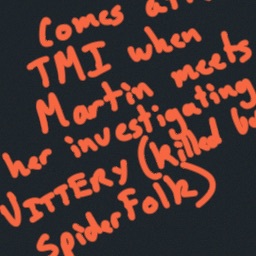 Comes
TMI when
Martin meets
her investigating
VITTERY (killed
SpiderFolk)